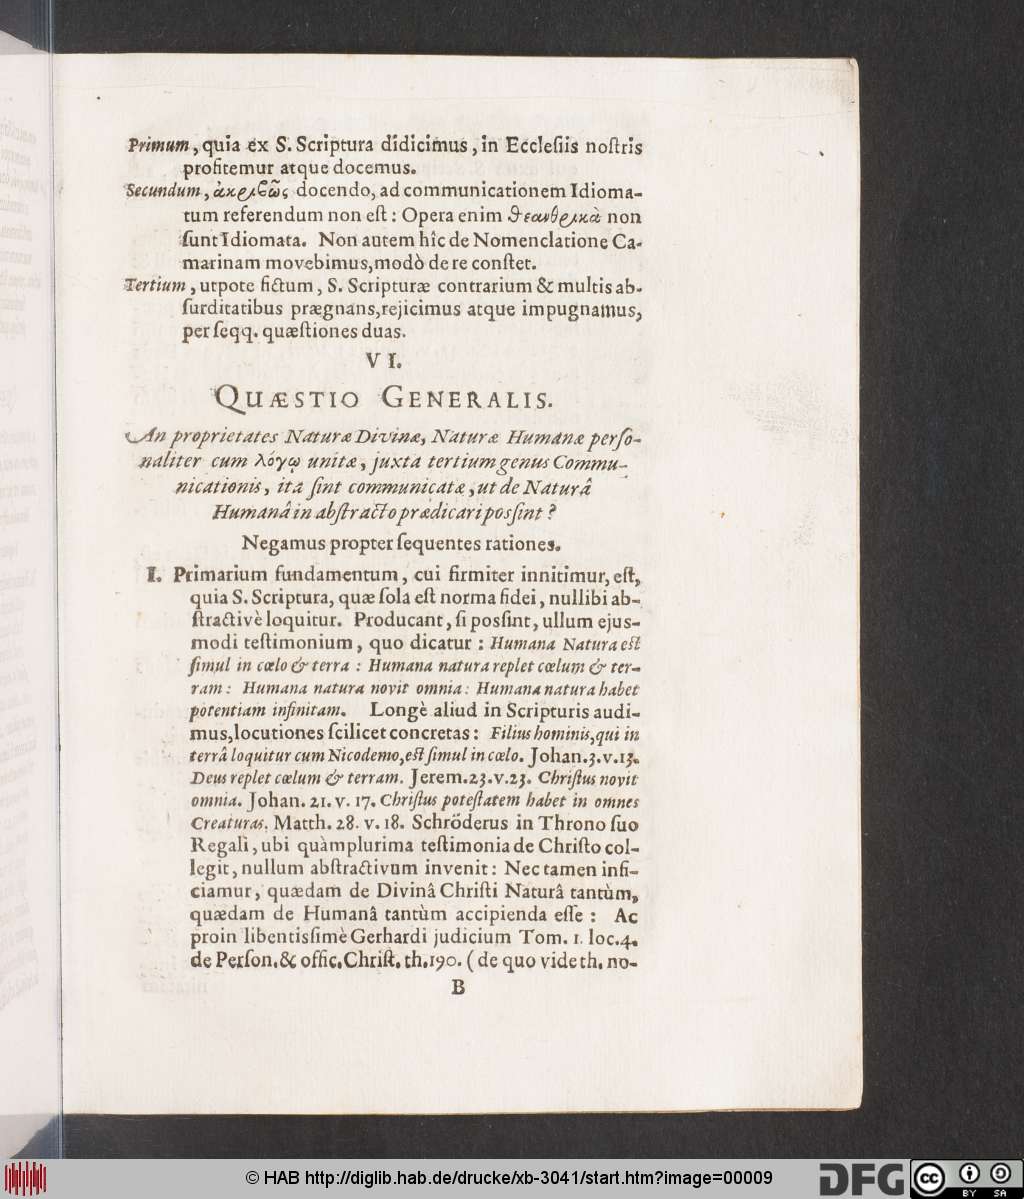 Primum, quia ex S. Scriptura didicimus, in Eccleſiis noſtris
profitemur atque docemus.
Secundum, ἀκριβῶς docendo, ad communicationem Idioma-
tum referendum non eſt: Opera enim θεανθρικὰ non
ſunt Idiomata. Non autem hîc de Nomenclatione Ca-
marinam movebimus, modò de re conſtet.
Tertium, utpote fictum, S. Scripturæ contrarium & multis ab-
ſurditatibus prægnans, rejicimus atque impugnamus,
per ſeqq. quæſtiones duas.
VI.
QUÆSTIO GENERALIS.
An proprietates Naturæ Divinæ, Naturæ Humanæ perſo-
naliter cum λόγῳ unitæ, juxta tertium genus Commu-
nicationis, ita ſint communicatæ, ut de Naturâ
Humanâ in abſtracto prædicari posſint?
Negamus propter ſequentes rationes.
I. Primarium fundamentum, cui firmiter innitimur, eſt,
quia S. Scriptura, quæ ſola eſt norma fidei, nullibi ab-
ſtractivè loquitur. Producant, ſi poſſint, ullum ejus-
modi teſtimonium, quo dicatur: Humana Natura eſt
ſimul in cœlo & terra: Humana natura replet cœlum & ter-
ram: Humana natura novit omnia: Humana natura habet
potentiam infinitam. Longè aliud in Scripturis audi-
mus, locutiones ſcilicet concretas: Filius hominis, qui in
terrâ loquitur cum Nicodemo, eſt ſimul in cœlo. Johan. 3. v. 13.
Deus replet cœlum & terram. Jerem. 23. v. 23. Chriſtus novit
omnia. Johan. 21. v. 17. Chriſtus poteſtatem habet in omnes
Creaturas. Matth. 28. v. 18. Schröderus in Throno ſuo
Regali, ubi quàmplurima teſtimonia de Chriſto col-
legit, nullum abſtractivum invenit: Nec tamen infi-
ciamur, quædam de Divinâ Chriſti Naturâ tantùm,
quædam de Humanâ tantùm accipienda eſſe: Ac
proin libentisſimè Gerhardi judicium Tom. 1. loc. 4.
de Perſon. & offic. Chriſt. th. 190. (de quo vide th. no-
B
© HAB http://diglib.hab.de/drucke/xb-3041/start.htm?image=00009
DFG
cc
BY SA